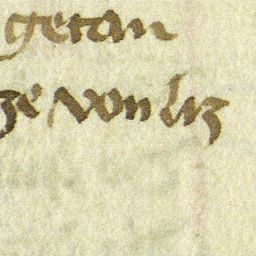 getan
ze von liz